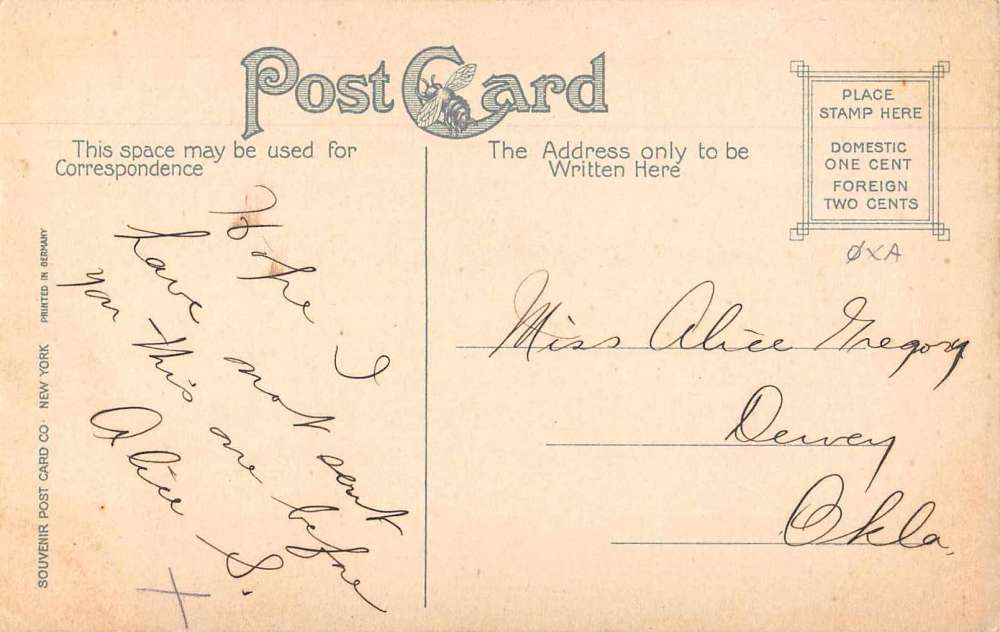 Post Card
This space may be used for
Correspondence
The Address only to be
Written Here
PLACE
STAMP HERE
DOMESTIC
ONE CENT
FOREIGN
TWO CENTS
ØXA
Hope I
have not sent
you this one before
Alice S.
X
Miss Alice Gregory
Dewey
Okla.
SOUVENIR POST CARD CO. NEW YORK PRINTED IN GERMANY